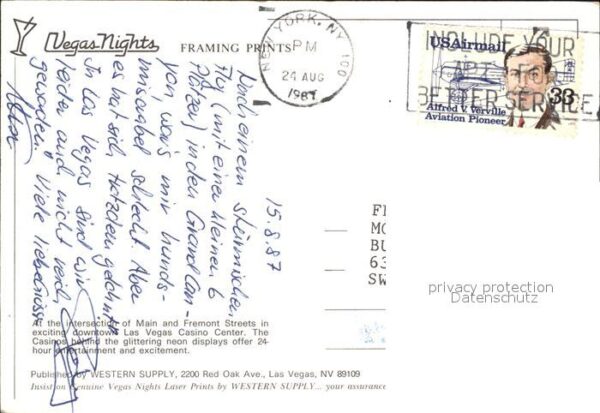 Vegas Nights
FRAMING PRINTS
NEW YORK, NY 100
PM
24 AUG
1987
INCLUDE YOUR
APT. NO. FOR
BETTER SERVICE
USAirmail
33
Alfred V. Verville
Aviation Pioneer
15.8.87
Nach einem stürmischen
Flug (mit einer kleinen 6
Plätzer) in den Grand Can-
yon, war's mir hunds-
miserabel schlecht. Aber
es hat sich trotzdem gelohnt.
In Las Vegas sind wir
leider auch nicht reich
geworden. Viele liebe Grüsse
FI
MO
BU
63
SW
privacy protection
Datenschutz
At the intersection of Main and Fremont Streets in
exciting downtown Las Vegas Casino Center. The
Casinos behind the glittering neon displays offer 24-
hour entertainment and excitement.
Published by WESTERN SUPPLY, 2200 Red Oak Ave., Las Vegas, NV 89109
Insist on Genuine Vegas Nights Laser Prints by WESTERN SUPPLY... your assurance